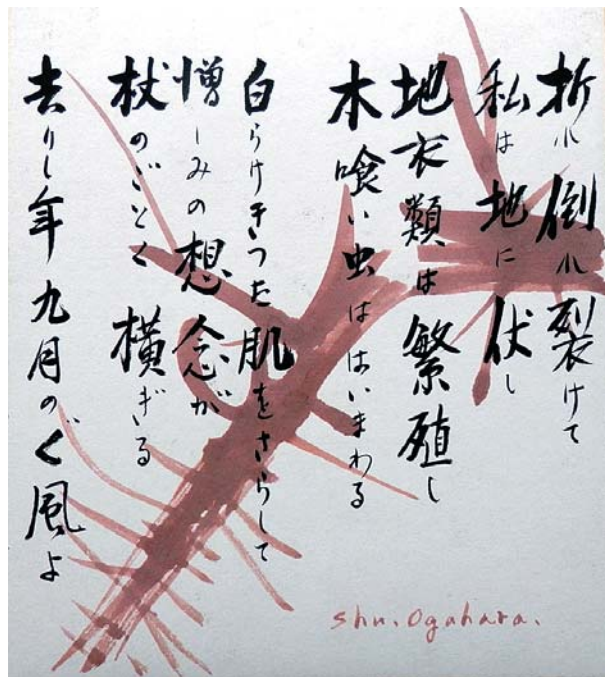 折れ倒れ裂けて
私は地に伏し
地衣類は繁殖し
木喰い虫ははいまわる
白らけきった肌をさらして
憎しみの想念が
杖のごとく横ぎる
去りし年九月のぐ風よ
shu. Ogahara.